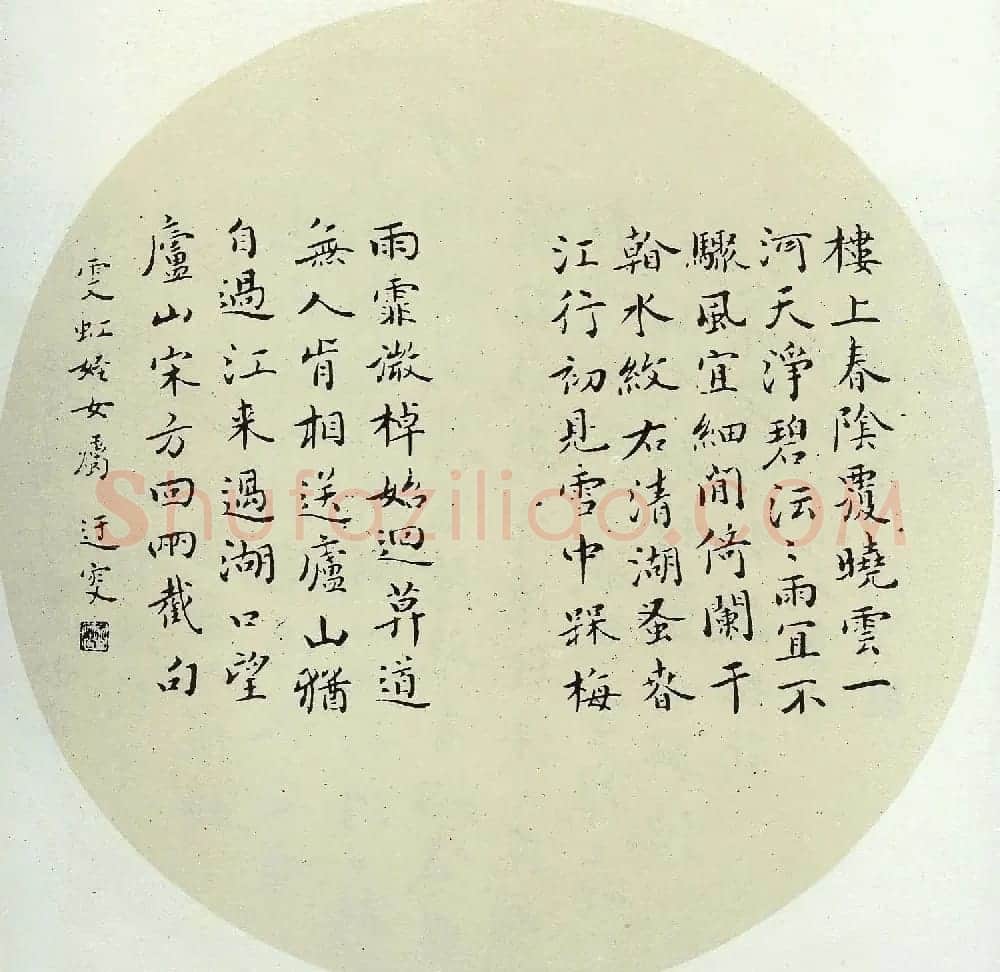 樓上春陰覆曉雲一
河天淨碧沄〻雨宜不
驟風宜細閒倚闌干
看水紋右清湖蚤春
江行初見雪中槑梅
雨霏微棹始迴莫道
無人肯相送廬山猶
自過江来過湖口望
廬山宋方回兩截句
雯虹姪女屬 迂叟
Shufaziliao.COM